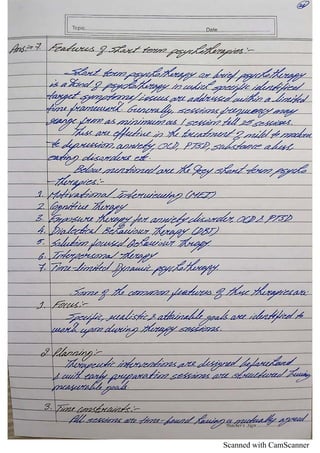 Topic
Date
Ans:- 7. Features of Short term psychotherapies:-
Short term psychotherapy or brief psychotherapy
is a kind of psychotherapy in which specific identified
target symptoms/issues are addressed within a limited
time framework. Generally, sessions frequency may
range from as minimum as 1 session till 25 sessions.
This are effective in the treatment of mild to moderate
to depression, anxiety, OCD, PTSD, substance abuse
eating disorders etc
Below mentioned are the key short term psycho
- therapies:-
1. Motivational Interviewing (MET)
2. Cognitive therapy
3. Exposure therapy for anxiety disorder, OCD & PTSD
4. Dialectical Behaviour Therapy (DBT)
5. Solution focused Behaviour therapy
6. Interpersonal therapy
7. Time-limited Dynamic psychotherapy.
Some of the common features of these therapies are:
1. Focus:-
Specific, realistic & attainable goals are identified to
work upon during therapy sessions.
2. Planning:-
Therapeutic interventions are designed beforehand
& with early preparation sessions are structured having
measurable goals
3. Time constraints:-
All sessions are time-bound having a mutually agreed
Teacher's Sign
Scanned with CamScanner